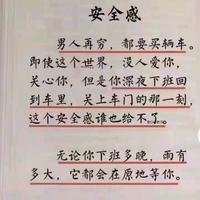 安全感
男人再穷，都要买辆车。
即使这个世界，没人爱你，
关心你，但是你深夜下班回
到车里，关上车门的那一刻，
这个安全感谁也给不了。
无论你下班多晚，雨有
多大，它都会在原地等你。